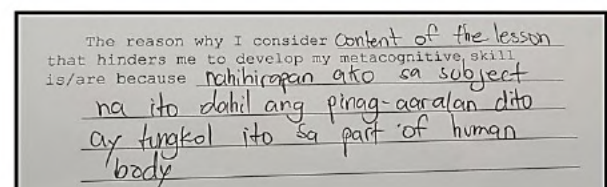 The reason why I consider content of the lesson
that hinders me to develop my metacognitive skill
is/are because nahihirapan ako sa subject
na ito dahil ang pinag-aaralan dito
ay tungkol ito sa part of human
body